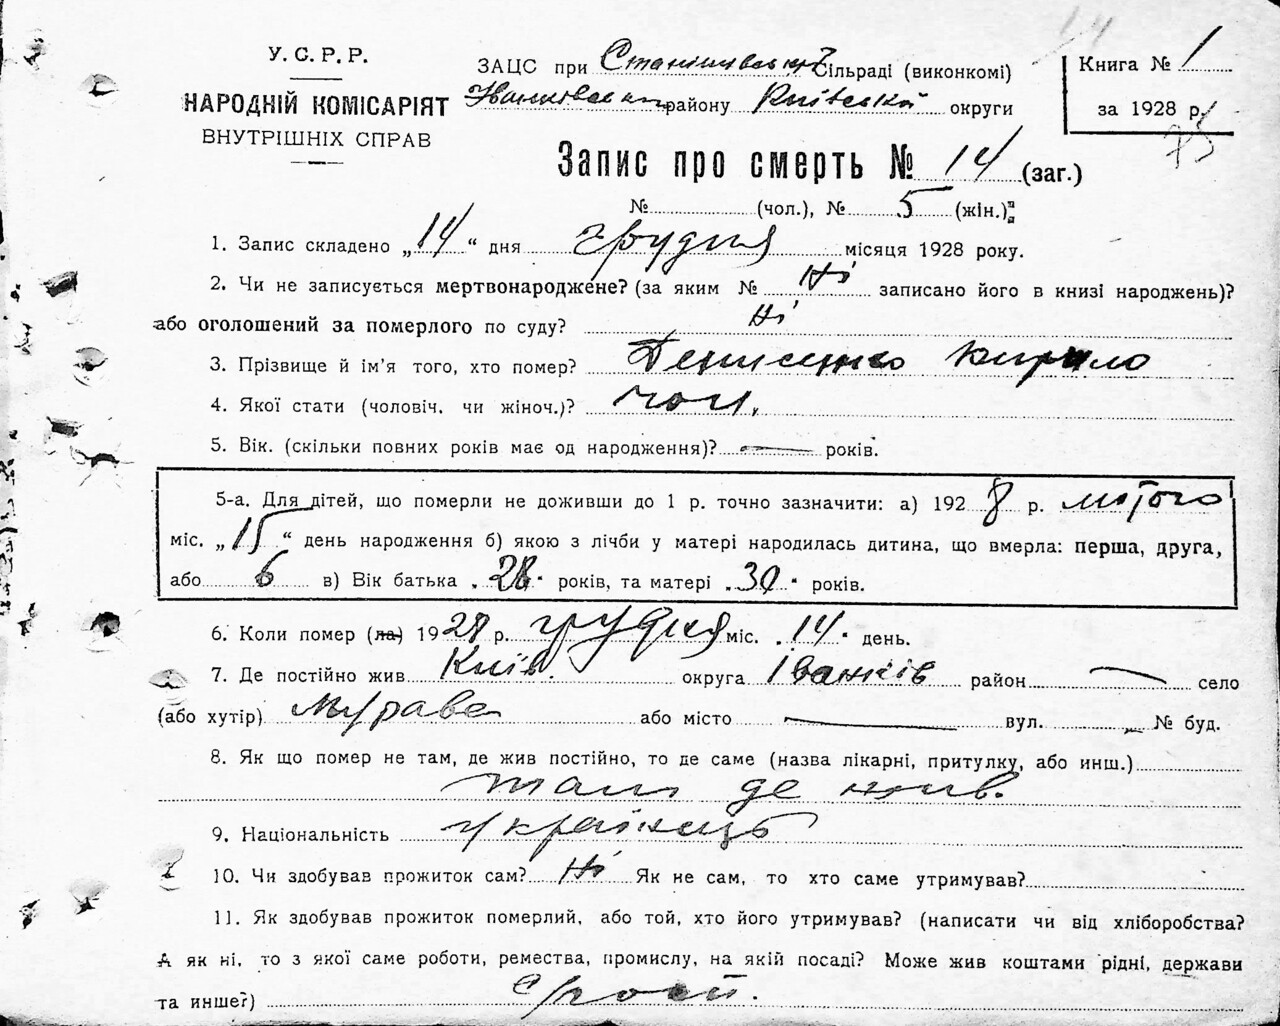 14
У. С. Р. Р.
НАРОДНІЙ КОМІСАРІЯТ
ВНУТРІШНІХ СПРАВ
ЗАЦС при Станішівській Сільраді (виконкомі)
району Київської округи
Книга № 1
за 1928 р.
75
Запис про смерть № 14 (заг.)
№ (чол.), № 5 (жін.)
1. Запис складено „14“ дня грудня місяця 1928 року.
2. Чи не записується мертвонароджене? (за яким № Ні записано його в книзі народжень)?
або оголошений за померлого по суду? Ні
3. Прізвище й ім'я того, хто помер? Денисенко Кирило
4. Якої стати (чоловіч. чи жіноч.)? чол.
5. Вік. (скільки повних років має од народження)? — років.
5-а. Для дітей, що померли не доживши до 1 р. точно зазначити: а) 1928 р. лютого
міс. „15“ день народження б) якою з лічби у матері народилась дитина, що вмерла: перша, друга,
або 6 в) Вік батька „28“ років, та матері „30“ років.
6. Коли помер (ла) 1928 р. грудня міс. „14“ день.
7. Де постійно жив Київ. округа Іванків район — село
(або хутір) або місто — вул. „ № буд.
8. Як що помер не там, де жив постійно, то де саме (назва лікарні, притулку, або инш.)
там де жив.
9. Національність українець
10. Чи здобував прожиток сам? Ні Як не сам, то хто саме утримував?
11. Як здобував прожиток померлий, або той, хто його утримував? (написати чи від хліборобства?
А як ні, то з якої саме роботи, ремества, промислу, на якій посаді? Може жив коштами рідні, держави
та инше?)